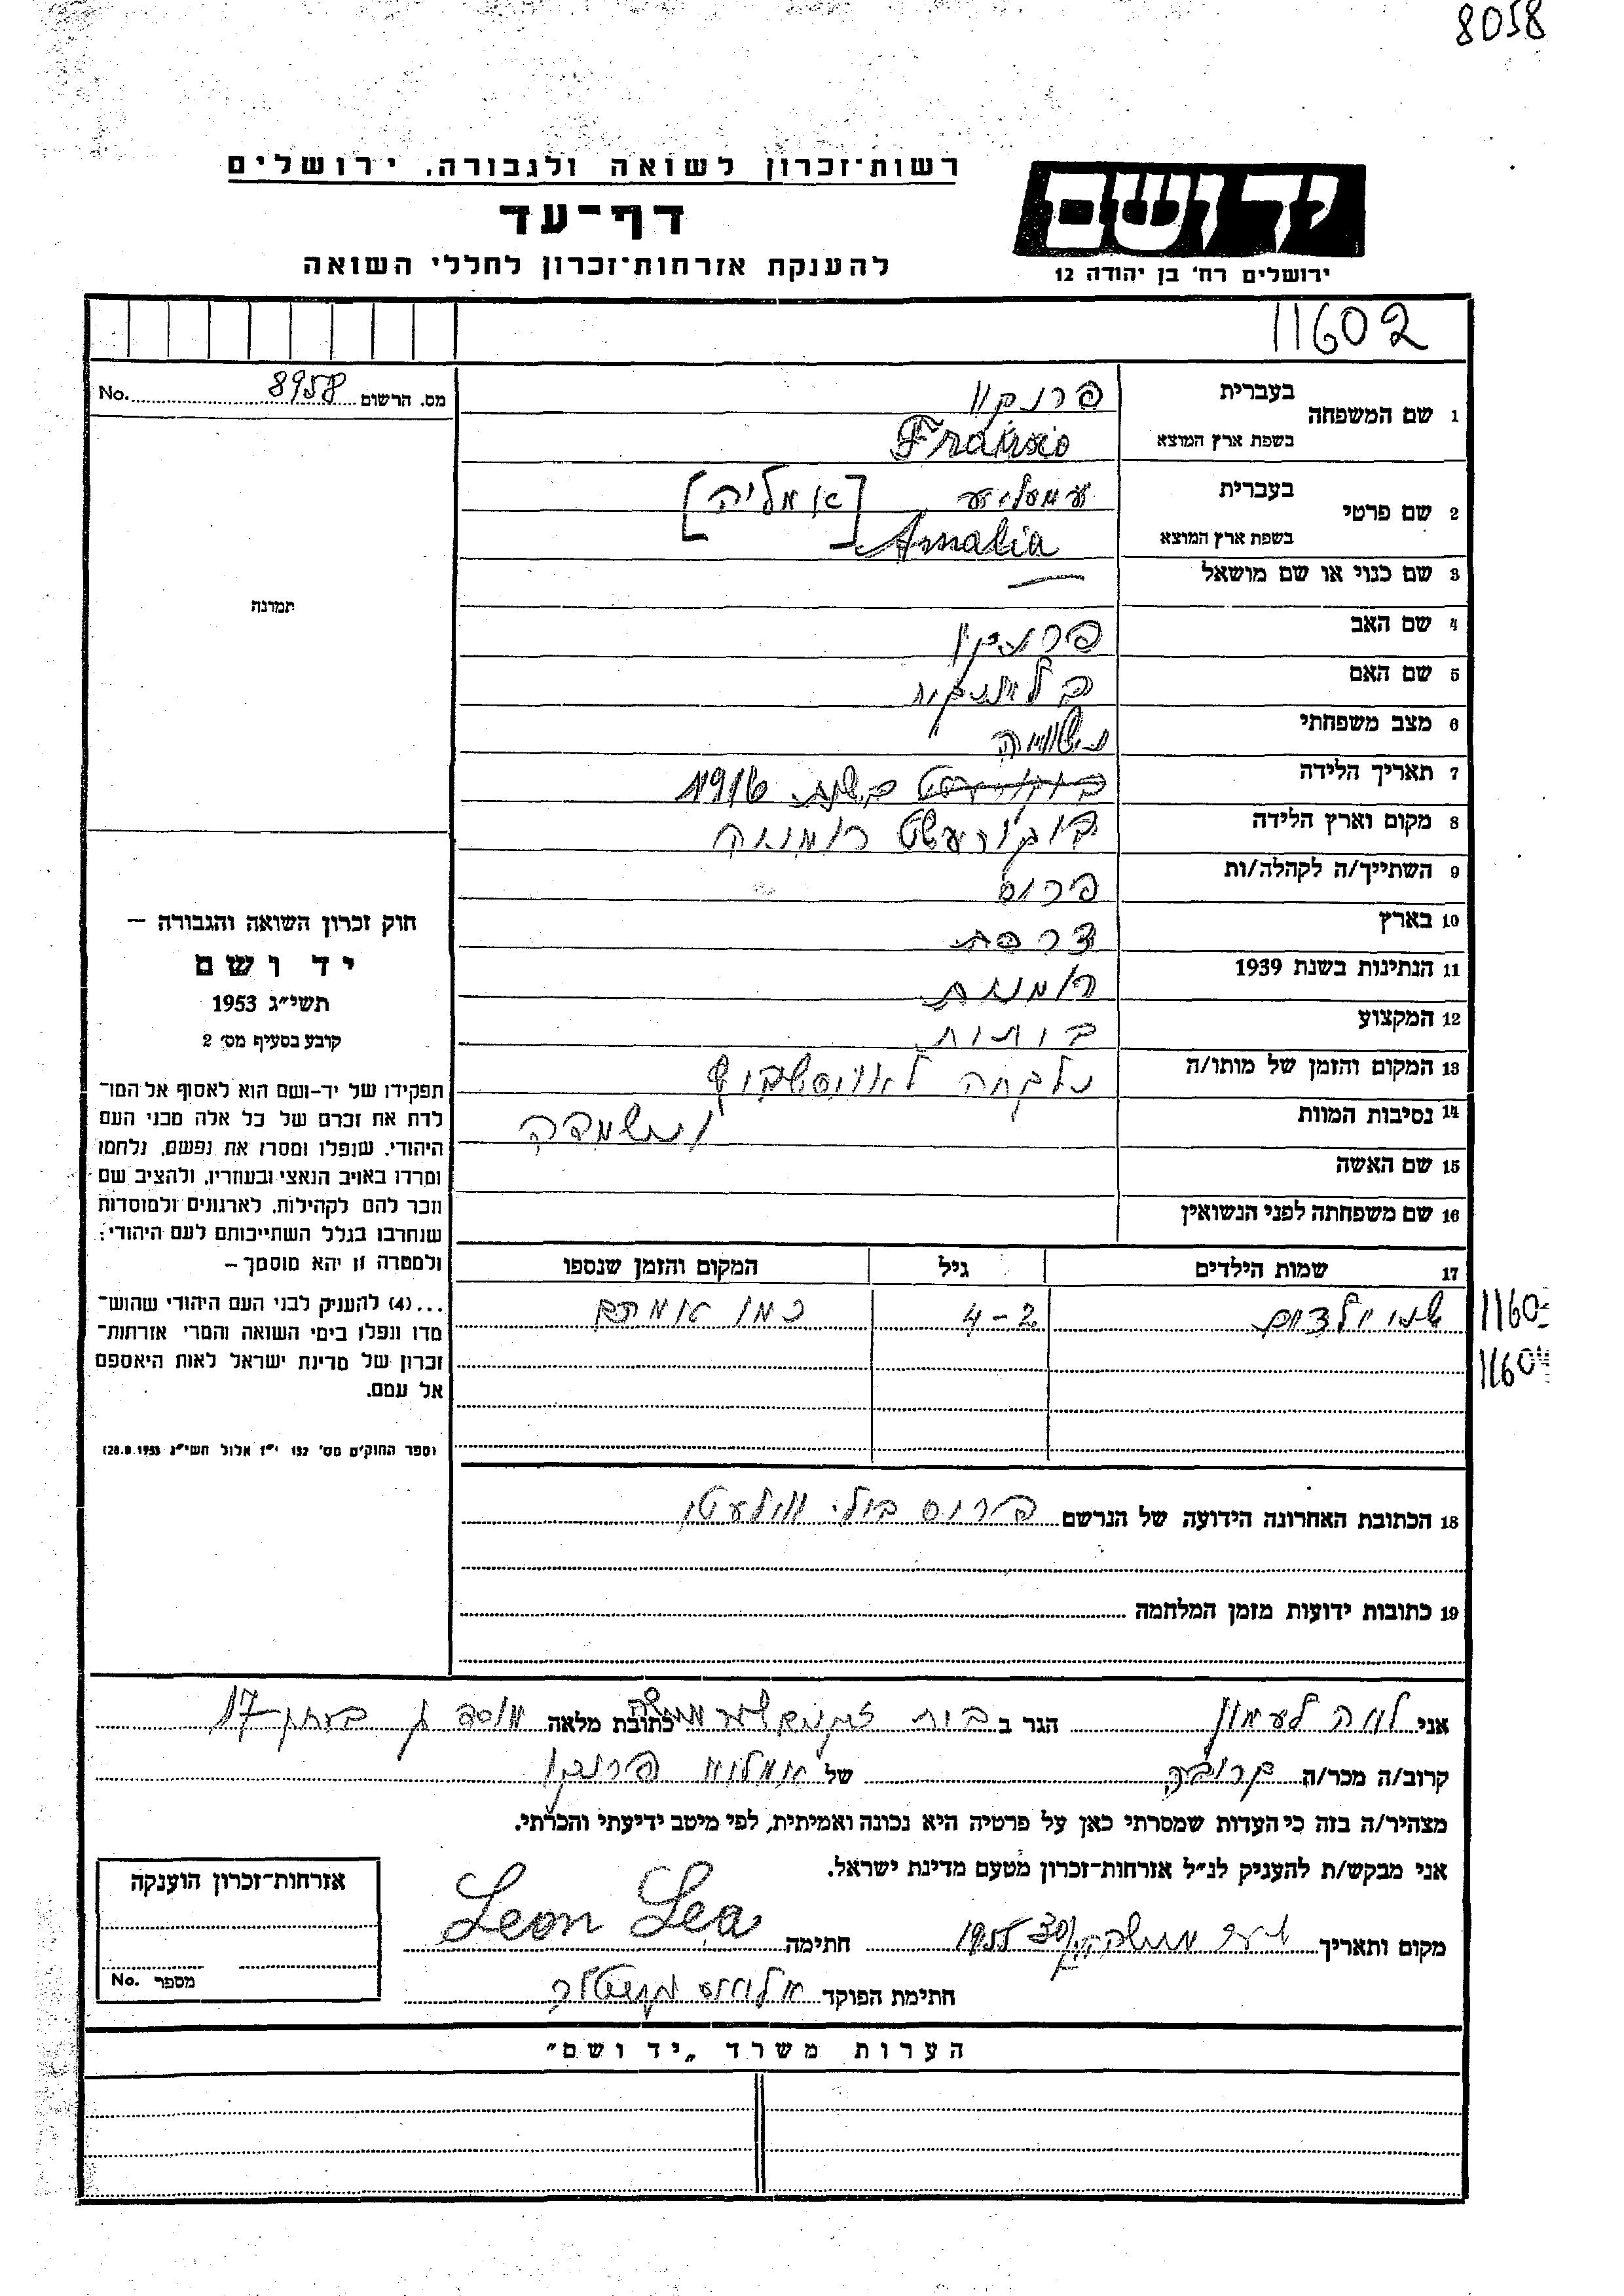 8058
רשות־זכרון לשואה ולגבורה, ירושלים
דף־עד
להענקת אזרחות־זכרון לחללי השואה
יד ושם
ירושלים רח' בן יהודה 12
11602
מס. הרשום 8958 No.
1 שם המשפחה
בעברית
בשפת ארץ המוצא
Amalia
2 שם פרטי
בעברית עמעליע [אמליה]
בשפת ארץ המוצא
3 שם כנוי או שם מושאל —
4 שם האב
5 שם האם
6 מצב משפחתי נשואה
7 תאריך הלידה בשנת 1916
8 מקום וארץ הלידה בוקורעשט רומניה
9 השתייך/ה לקהלה/ות פריס
10 בארץ צרפת
11 הנתינות בשנת 1939 רומנית
12 המקצוע
13 המקום והזמן של מותו/ה נלקחה לאויסשביץ
14 נסיבות המוות ונשמדה
15 שם האשה
16 שם משפחתה לפני הנשואין
17 שמות הילדים גיל המקום והזמן שנספו
שני ילדים 2-4 כמו אמם
1160
1160
18 הכתובת האחרונה הידועה של הנרשם פריס
19 כתובות ידועות מזמן המלחמה
תמונה
חוק זכרון השואה והגבורה —
יד ושם
תשי"ג 1953
קובע בסעיף מס' 2
תפקידו של יד-ושם הוא לאסוף אל המו־
לדת את זכרם של כל אלה מבני העם
היהודי, שנפלו ומסרו את נפשם, נלחמו
ומרדו באויב הנאצי ובעוזריו, ולהציב שם
וזכר להם לקהילות, לארגונים ולמוסדות
שנחרבו בגלל השתייכותם לעם היהודי;
ולמטרה זו יהא מוסמך —
...(4) להעניק לבני העם היהודי שהוש־
מדו ונפלו בימי השואה והמרי אזרחות־
זכרון של מדינת ישראל לאות היאספם
אל עמם.
(ספר החוקים מס' 132 י"ז אלול תשי"ג 28.8.1953)
אני לאה לעאון הגר ב בית כתובת מלאה 17
קרוב/ה מכר/ה קרובה של
מצהיר/ה בזה כי העדות שמסרתי כאן על פרטיה היא נכונה ואמיתית, לפי מיטב ידיעתי והכרתי.
אני מבקש/ת להעניק לנ"ל אזרחות־זכרון מטעם מדינת ישראל.
מקום ותאריך 1955 חתימה Leon Lea
חתימת הפוקד
אזרחות־זכרון הוענקה
מספר No.
הערות משרד „יד ושם"